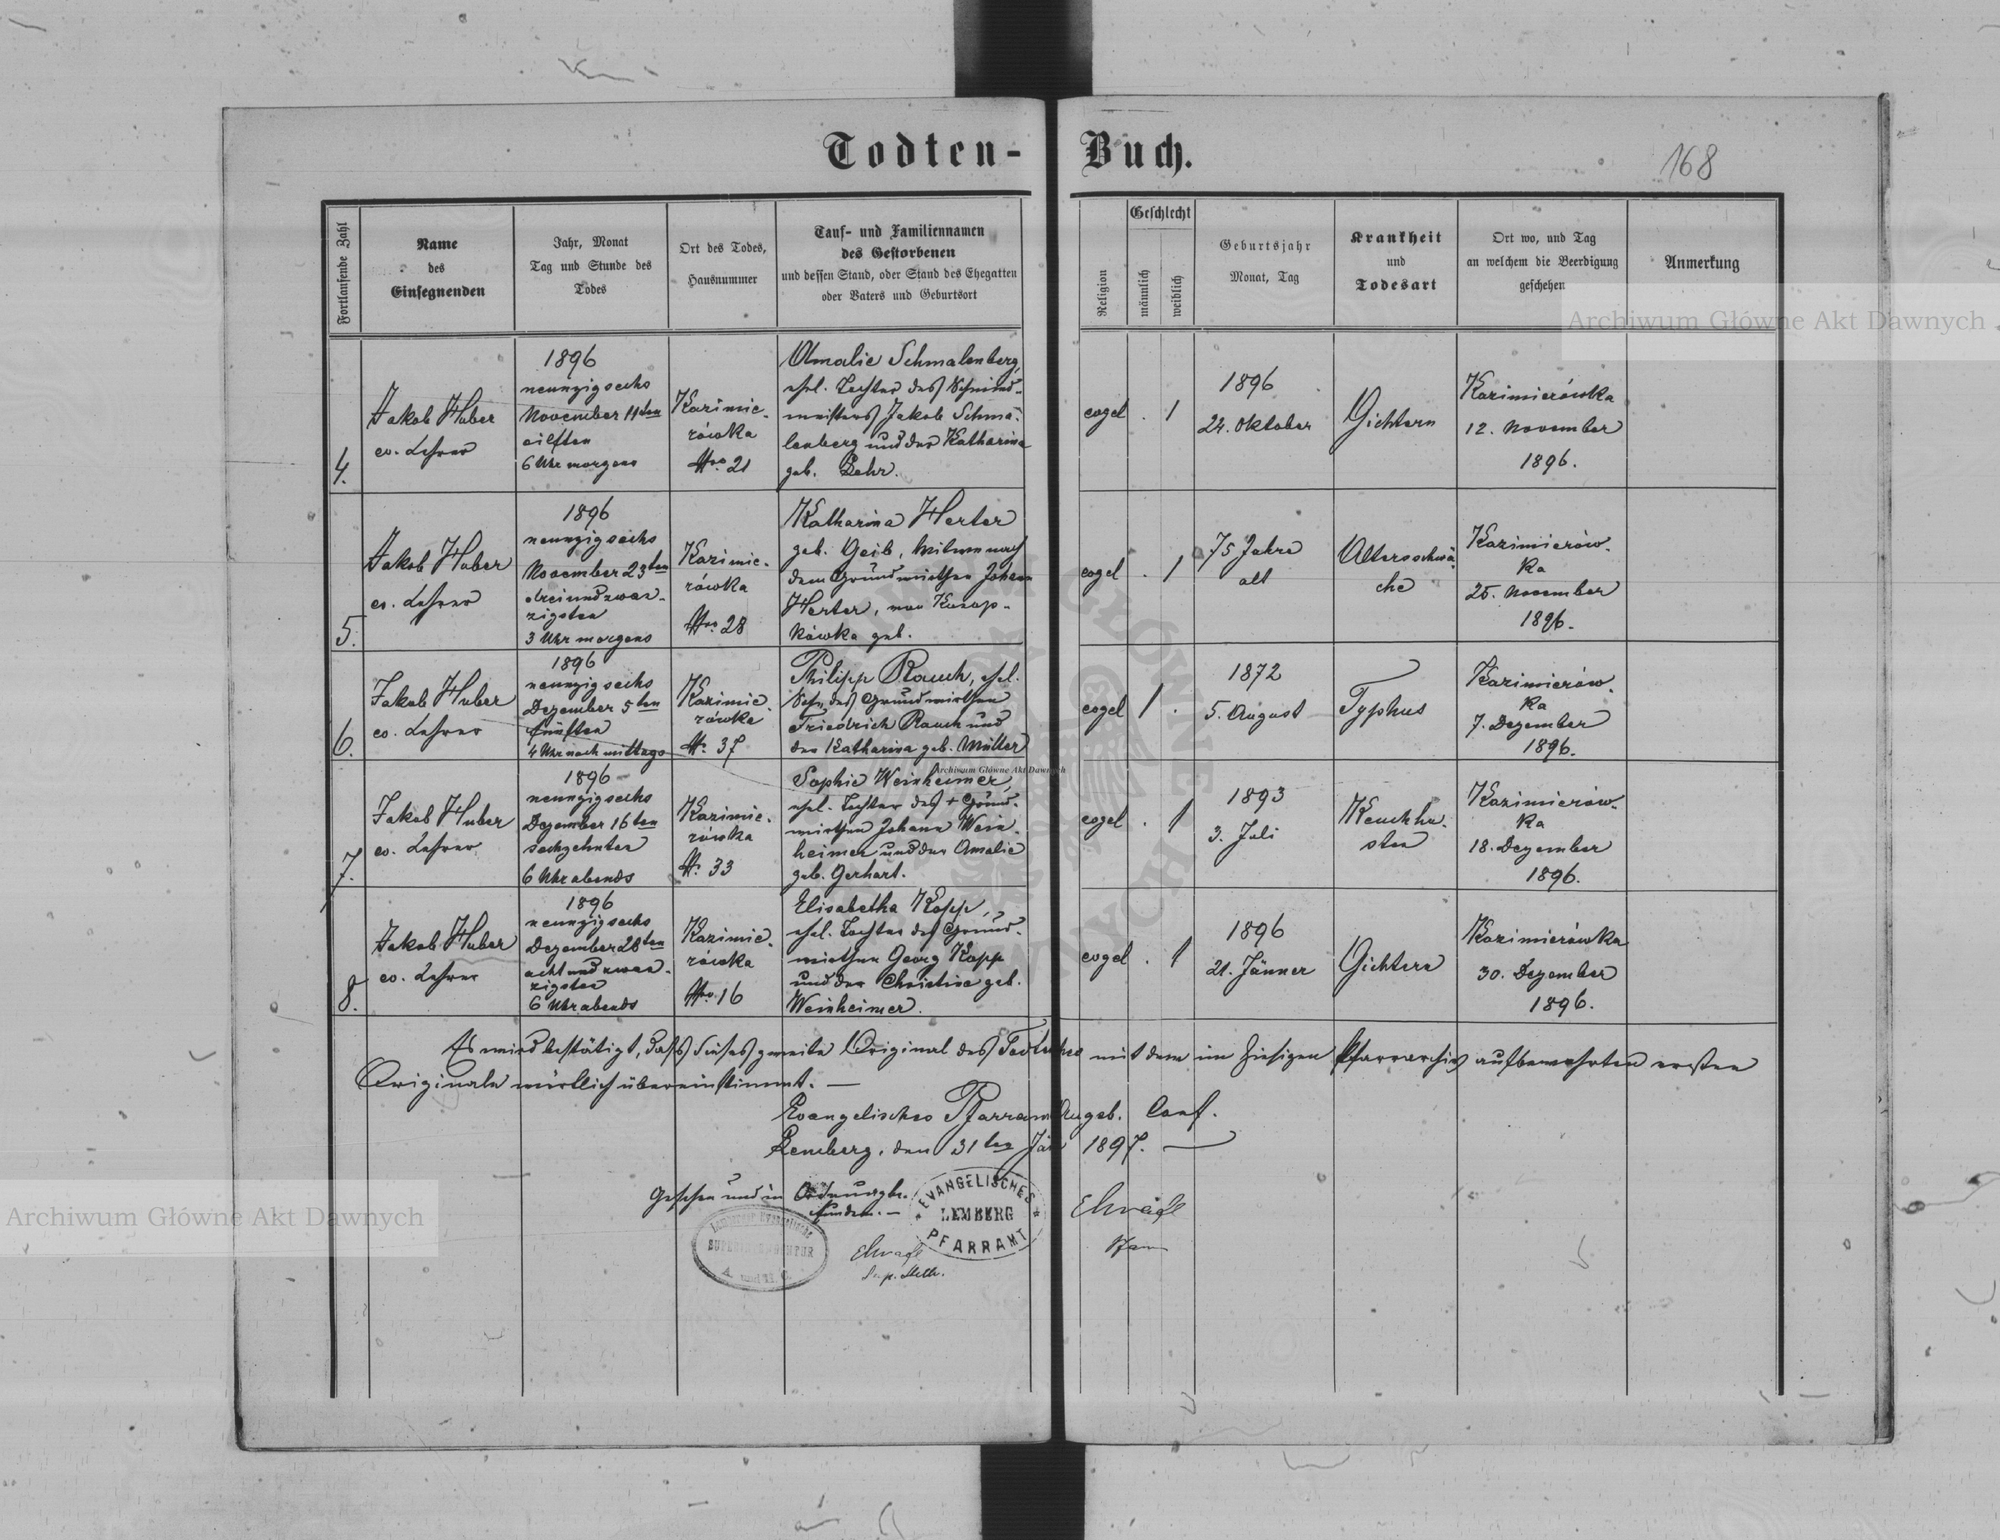 Todten-Buch.
168
Fortlaufende Zahl
Name
des
Einsegnenden
Jahr, Monat
Tag und Stunde des
Todes
Ort des Todes,
Hausnummer
Tauf- und Familiennamen
des Gestorbenen
und dessen Stand, oder Stand des Ehegatten
oder Vaters und Geburtsort
Religion
Geschlecht
männlich
weiblich
Geburtsjahr
Monat, Tag
Krankheit
und
Todesart
Ort wo, und Tag
an welchem die Beerdigung
geschehen
Anmerkung
4.
Jakob Huber
ev. Lehrer
1896
neunzigsechs
November 11ten
eilften
6 Uhr morgens
Kazimie-
rówka
Nro. 21
Amalie Schmalenberg,
ehel. Tochter des Schmied-
meisters Jakob Schma-
lenberg und der Katharina
geb. Behr.
evgel . 1
1896
24. Oktober
Gichtern
Kazimierówka
12. November
1896.
5.
Jakob Huber
ev. Lehrer
1896
neunzigsechs
November 23ten
dreiundzwan-
zigsten
3 Uhr morgens
Kazimie-
rówka
Nro. 28
Katharina Herter
geb. Geib, Witwe nach
dem Grundwirthen Johann
Herter, von
geb.
evgel . 1
75 Jahre
alt
Altersschwä-
che
Kazimierów-
ka
25. November
1896.
6.
Jakob Huber
ev. Lehrer
1896
neunzigsechs
Dezember 5ten
fünften
4 Uhr nachmittags
Kazimie-
rówka
N. 37
Philipp Rauch, ehel.
Sohn des Grundwirthen
Friedrich Rauch und
der Katharina geb. Müller
evgel 1 .
1872
5. August
Typhus
Kazimierów-
ka
7. Dezember
1896.
7.
Jakob Huber
ev. Lehrer
1896
neunzigsechs
Dezember 16ten
sechzehnten
6 Uhr abends
Kazimie-
rówka
N. 33
Sophie Weinheimer,
ehel. Tochter des + Grund-
wirthen Johann Wein-
heimer und der Amalie
geb. Gerhart.
evgel . 1
1893
3. Juli
Keuchhu-
sten
Kazimierów-
ka
18. Dezember
1896.
8.
Jakob Huber
ev. Lehrer
1896
neunzigsechs
Dezember 28ten
achtundzwan-
zigsten
6 Uhr abends
Kazimie-
rówka
Nro. 16
Elisabetha Kopp,
ehel. Tochter des Grund-
wirthen Georg Kopp
und der Christine geb.
Weinheimer.
evgel . 1
1896
21. Jänner
Gichtern
Kazimierówka
30. Dezember
1896.
Es wird bestätigt, daß dieses zweite Original des mit dem im hiesigen Pfarrarchiv aufbewahrten ersten
Originale wörtlich übereinstimmt. —
Evangelisches Pfarramt Augsb. Conf.
Lemberg, den 31ten Jän 1897. —
Gesehen und in Ordnung be-
funden. —
EVANGELISCHES
LEMBERG
PFARRAMT
SUPERINTENDENTUR
A. und H. C.
Archiwum Główne Akt Dawnych
Archiwum Główne Akt Dawnych
Archiwum Główne Akt Dawnych